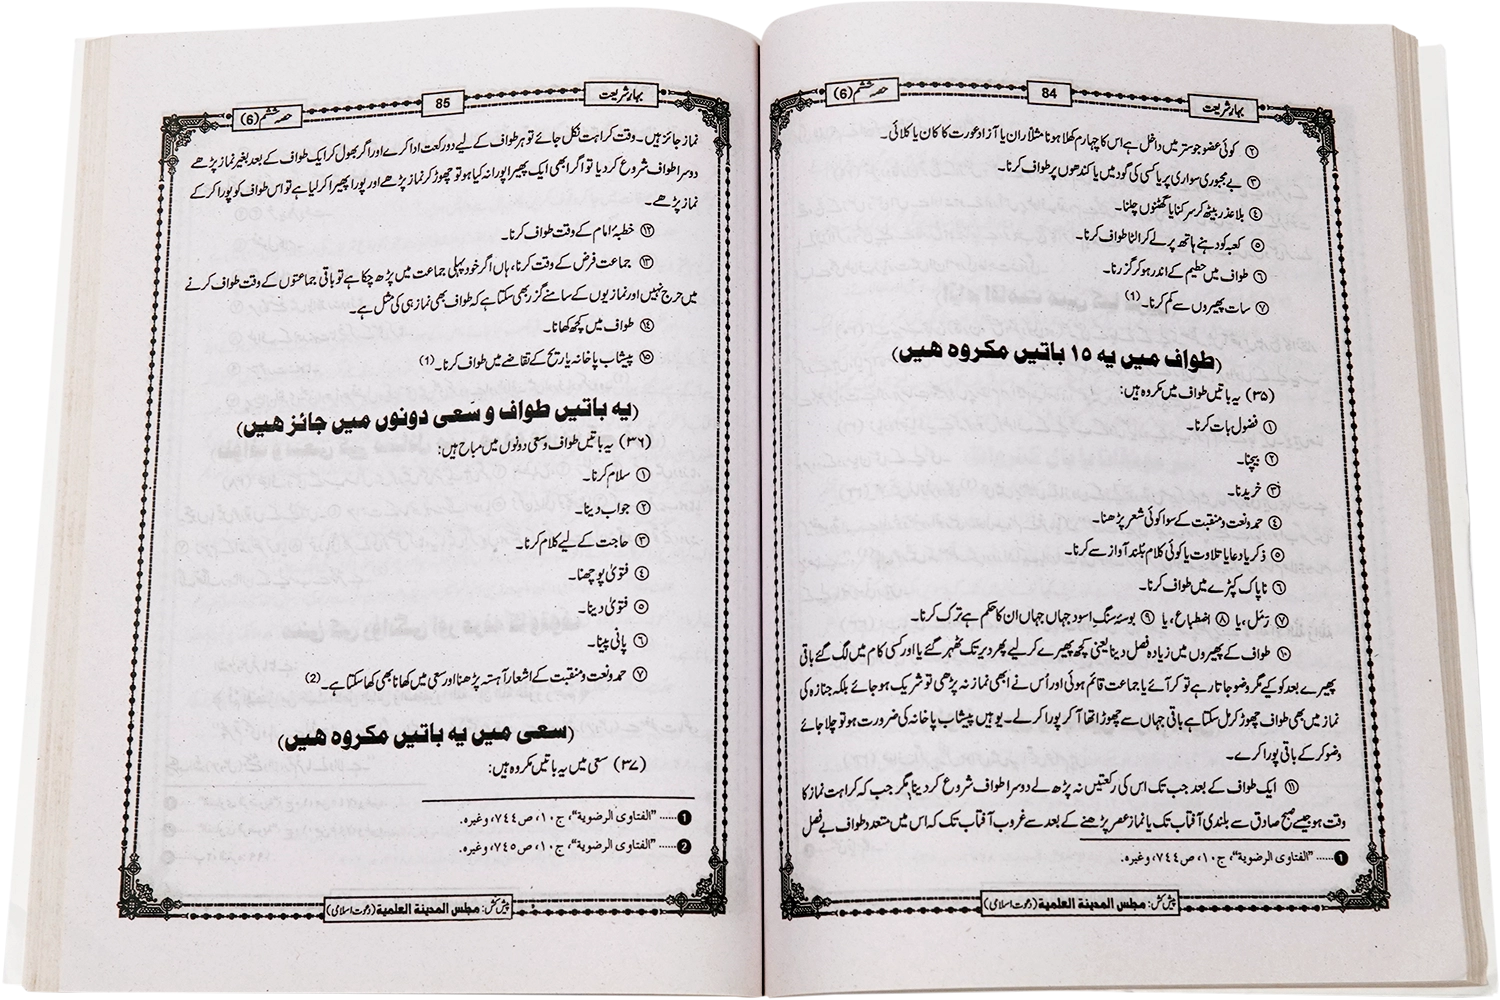 بہارِ شریعت
84
حصہ ششم (6)
② کوئی عضو جو ستر میں داخل ہے اس کا چہارم کھلا ہونا مثلاً ران یا آزاد عورت کا کان یا کلائی۔
③ بے مجبوری سواری پر یا کسی کی گود میں یا کندھوں پر طواف کرنا۔
④ بلاعذر بیٹھ کر سرکنا یا گھٹنوں چلنا۔
⑤ کعبہ کو دہنے ہاتھ پر لے کر الٹا طواف کرنا۔
⑥ طواف میں حطیم کے اندر ہو کر گزرنا۔
⑦ سات پھیروں سے کم کرنا۔ (1)
(طواف میں یہ ۱۵ باتیں مکروہ ہیں)
(۳۵) یہ باتیں طواف میں مکروہ ہیں:
① فضول بات کرنا۔
② بیچنا۔
③ خریدنا۔
④ حمد و نعت و منقبت کے سوا کوئی شعر پڑھنا۔
⑤ ذکر یا دعا یا تلاوت یا کوئی کلام بُلند آواز سے کرنا۔
⑥ ناپاک کپڑے میں طواف کرنا۔
⑦ رَمَل، یا ⑧ اضطباع، یا ⑨ بوسۂ سنگِ اسود جہاں جہاں ان کا حکم ہے ترک کرنا۔
⑩ طواف کے پھیروں میں زیادہ فصل دینا یعنی کچھ پھیرے کر لیے پھر دیر تک ٹھہر گئے یا اور کسی کام میں لگ گئے باقی
پھیرے بعد کو کیے مگر وضو جاتا رہے تو کر آئے یا جماعت قائم ہوئی اور اُس نے ابھی نماز نہ پڑھی تو شریک ہو جائے بلکہ جنازہ کی
نماز میں بھی طواف چھوڑ کر مل سکتا ہے باقی جہاں سے چھوڑا تھا آ کر پورا کر لے۔ یوہیں پیشاب پاخانہ کی ضرورت ہو تو چلا جائے
وضو کر کے باقی پورا کرے۔
⑪ ایک طواف کے بعد جب تک اس کی رکعتیں نہ پڑھ لے دوسرا طواف شروع کر دینا مگر جب کہ کراہت نماز کا
وقت ہو جیسے صبح صادق سے بلندی آفتاب تک یا نماز عصر پڑھنے کے بعد سے غروب آفتاب تک کہ اس میں متعدد طواف بے فصل
❶ ...... "الفتاوی الرضویة"، ج۱۰، ص۷۴۴، وغیرہ.
پیش کش: مجلس المدینة العلمیة (دعوتِ اسلامی)
بہارِ شریعت
85
حصہ ششم (6)
نماز جائز ہیں۔ وقت کراہت نکل جائے تو ہر طواف کے لیے دو رکعت ادا کرے اور اگر بھول کر ایک طواف کے بعد بغیر نماز پڑھے
دوسرا طواف شروع کر دیا تو اگر ابھی ایک پھیرا پورا نہ کیا ہو تو چھوڑ کر نماز پڑھے اور پورا پھیرا کر لیا ہے تو اس طواف کو پورا کر کے
نماز پڑھے۔
⑫ خطبۂ امام کے وقت طواف کرنا۔
⑬ جماعت فرض کے وقت کرنا، ہاں اگر خود پہلی جماعت میں پڑھ چکا ہے تو باقی جماعتوں کے وقت طواف کرنے
میں حرج نہیں اور نمازیوں کے سامنے گزر بھی سکتا ہے کہ طواف بھی نماز ہی کی مثل ہے۔
⑭ طواف میں کچھ کھانا۔
⑮ پیشاب پاخانہ یا ریح کے تقاضے میں طواف کرنا۔ (1)
(یہ باتیں طواف و سعی دونوں میں جائز ہیں)
(۳۶) یہ باتیں طواف و سعی دونوں میں مباح ہیں:
① سلام کرنا۔
② جواب دینا۔
③ حاجت کے لیے کلام کرنا۔
④ فتویٰ پوچھنا۔
⑤ فتویٰ دینا۔
⑥ پانی پینا۔
⑦ حمد و نعت و منقبت کے اشعار آہستہ پڑھنا اور سعی میں کھانا بھی کھا سکتا ہے۔ (2)
(سعی میں یہ باتیں مکروہ ہیں)
(۳۷) سعی میں یہ باتیں مکروہ ہیں:
❶ ...... "الفتاوی الرضویة"، ج۱۰، ص۷۴۴، وغیرہ.
❷ ...... "الفتاوی الرضویة"، ج۱۰، ص۷۴۵، وغیرہ.
پیش کش: مجلس المدینة العلمیة (دعوتِ اسلامی)